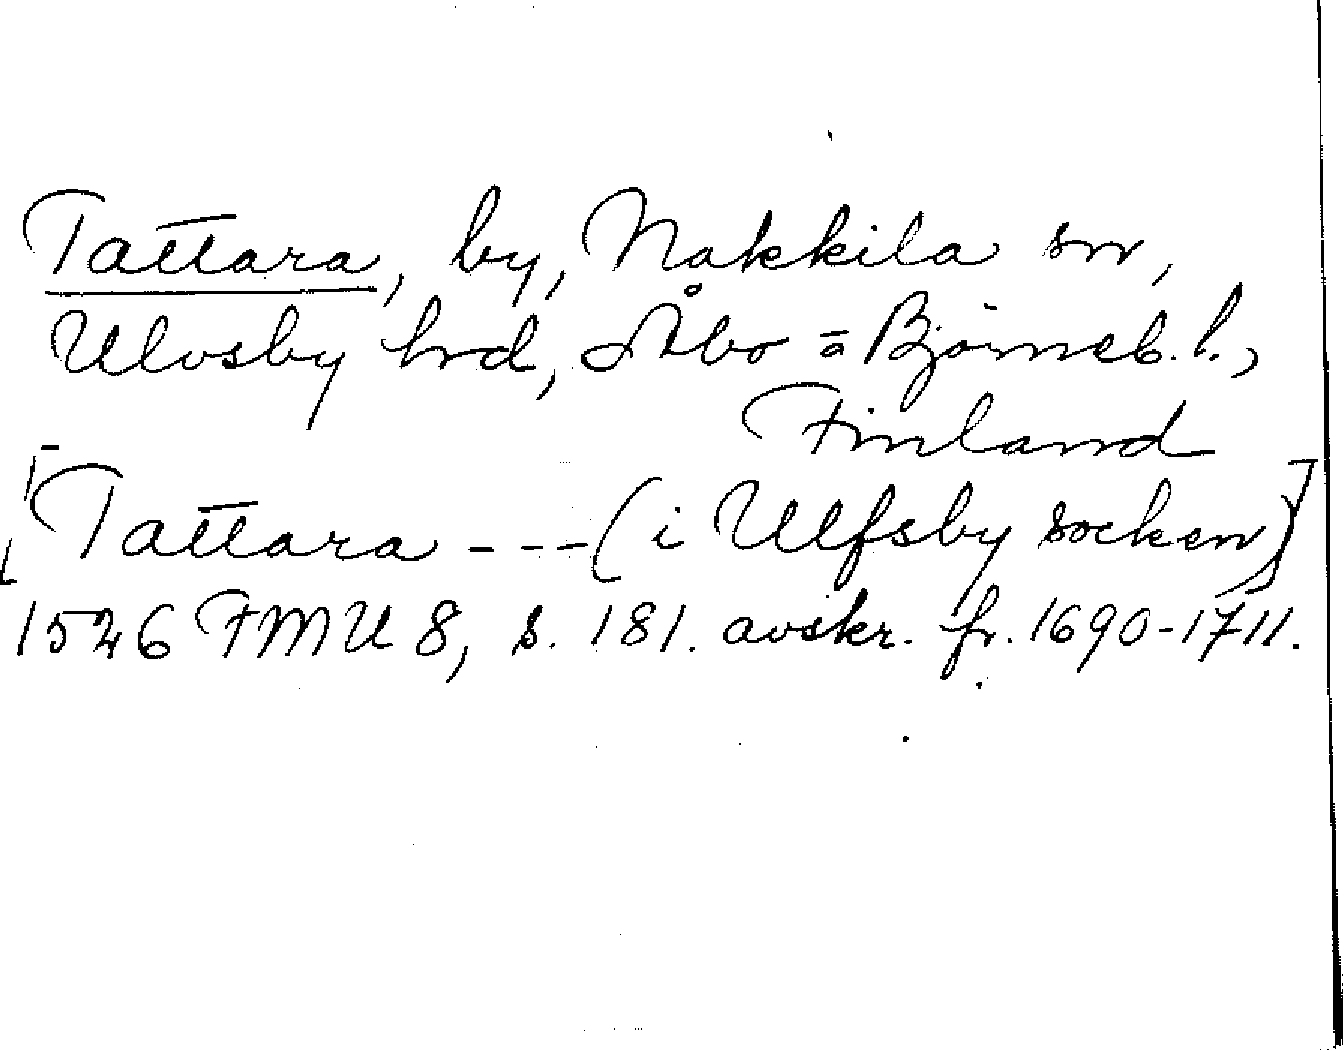 Tattara, by, Nakkila sn,
Ulvsby hrd, Åbo = Björneb. l.,
Finland
[Tattara --- (i Ulfsby socken)]
1526 FMU 8, s. 181. avskr. fr. 1690-1711.